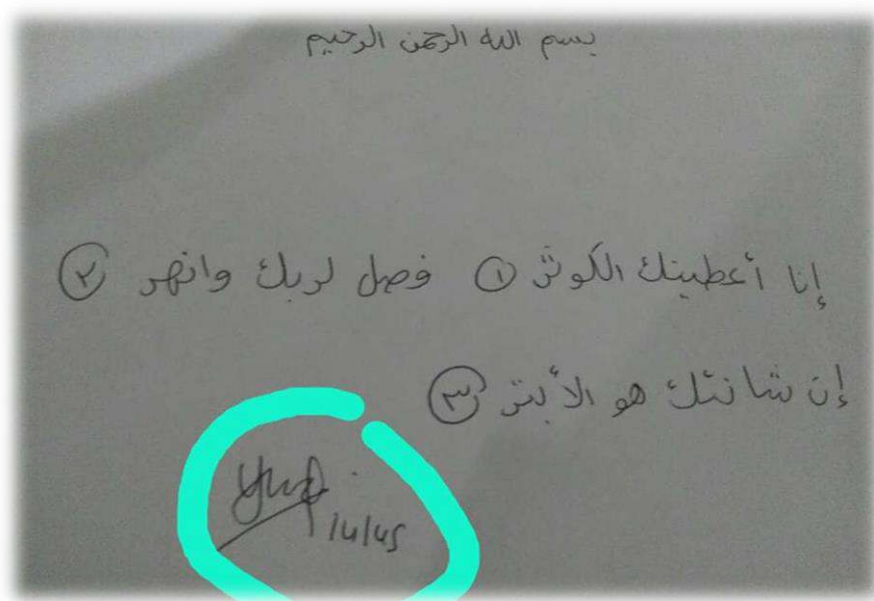 بسم الله الرحمن الرحيم
إنا أعطينك الكوثر ① فصل لربك وانهر ②
إن شانئك هو الأبتر ③